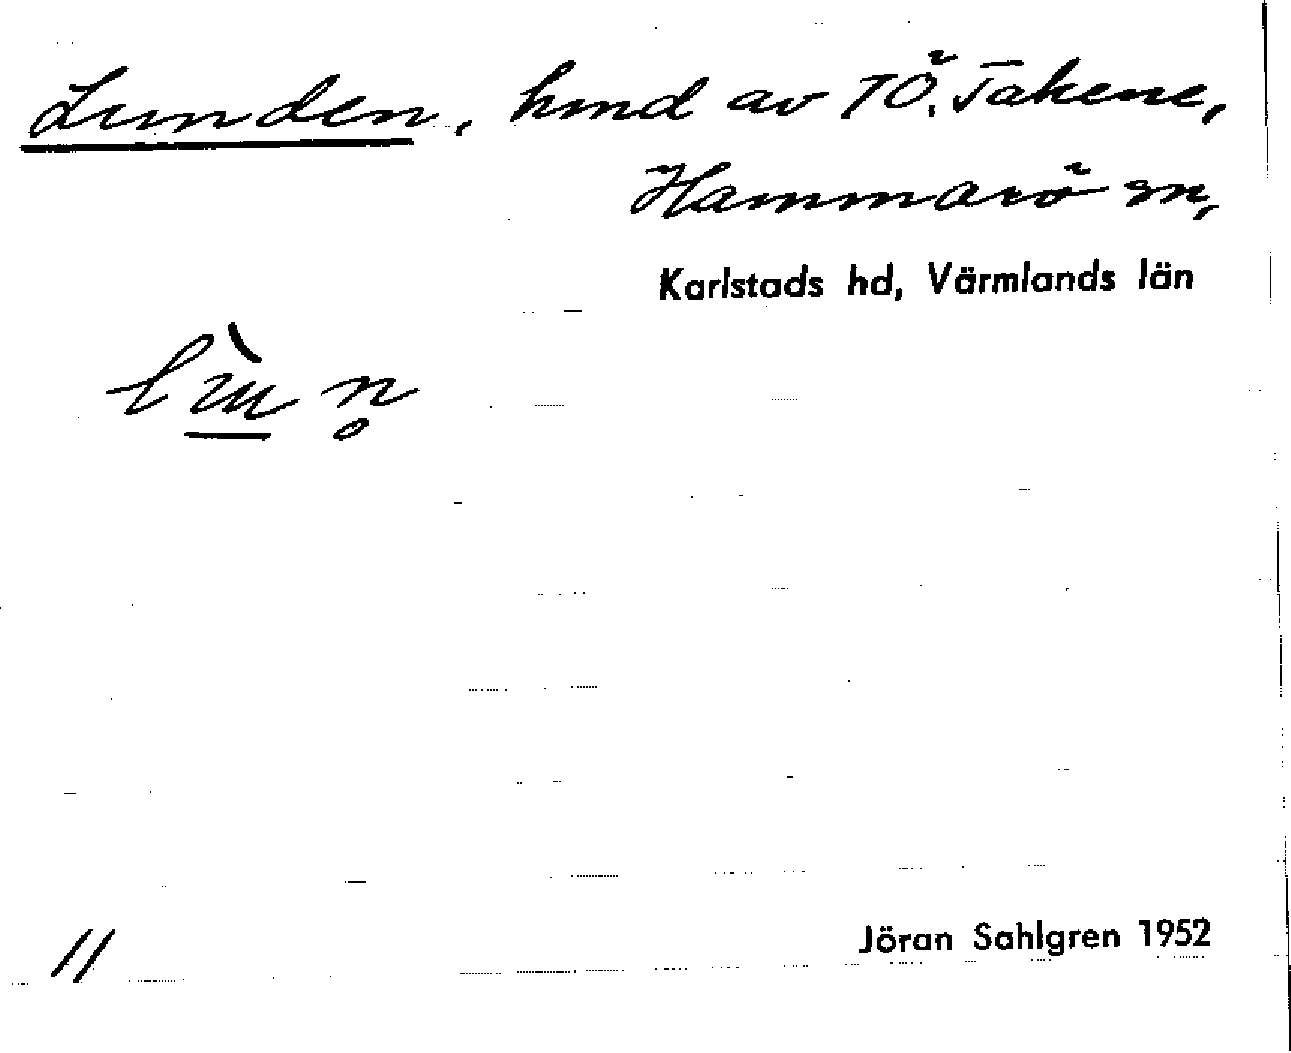 Lunden, hmd av TÖ. Takene,
Hammarö sn,
Karlstads hd, Värmlands län
11
Jöran Sahlgren 1952